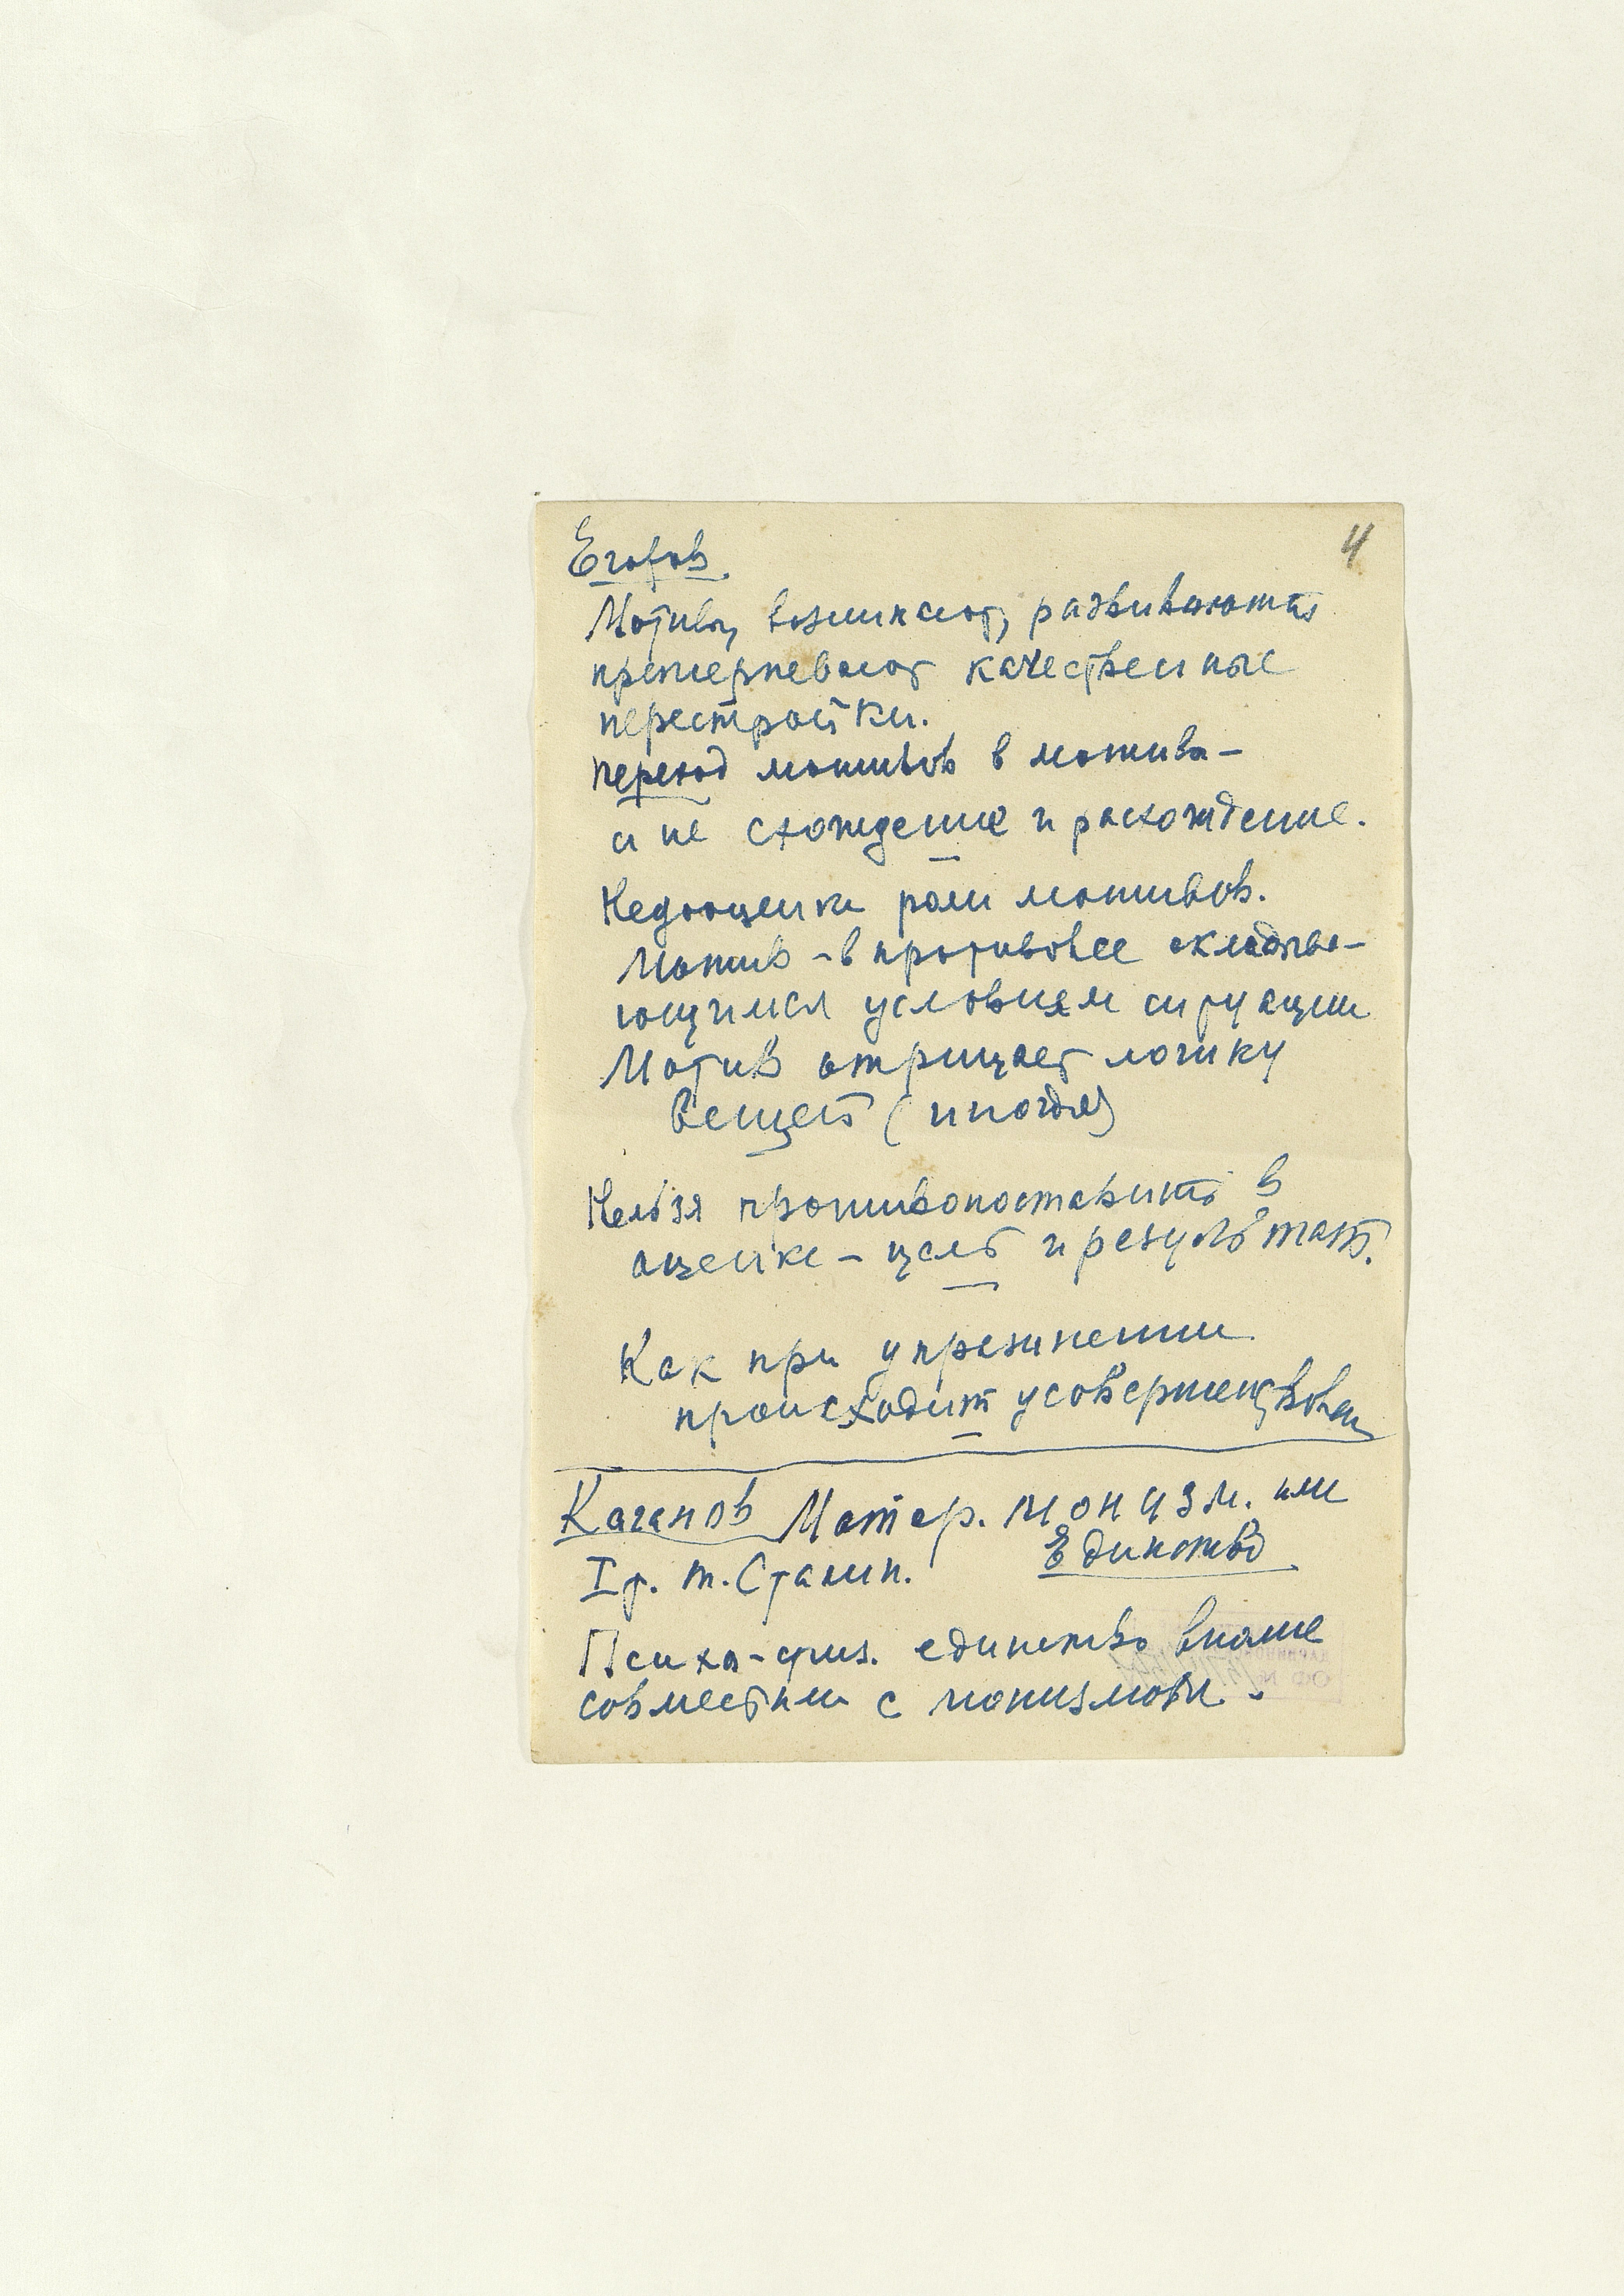 4
Егоров
Мотивы, возникают, развиваются
претерпевают качественные
перестройки.
Переход мотивов в мотива-
и не схождение и расхождение.
Недооценка роли мотивов.
Мотив - в противовес складыва-
ющимся условиям ситуации
Мотив отрицает логику
вещей (иногда)
Нельзя противопоставить в
оценке - цель и результат.
Как при упражнении
происходит усовершенствован
Каганов Матер. монизм. или
Единство
I г. т. Сталин.
Психо-физ. единство вполне
совместим с монизмом.